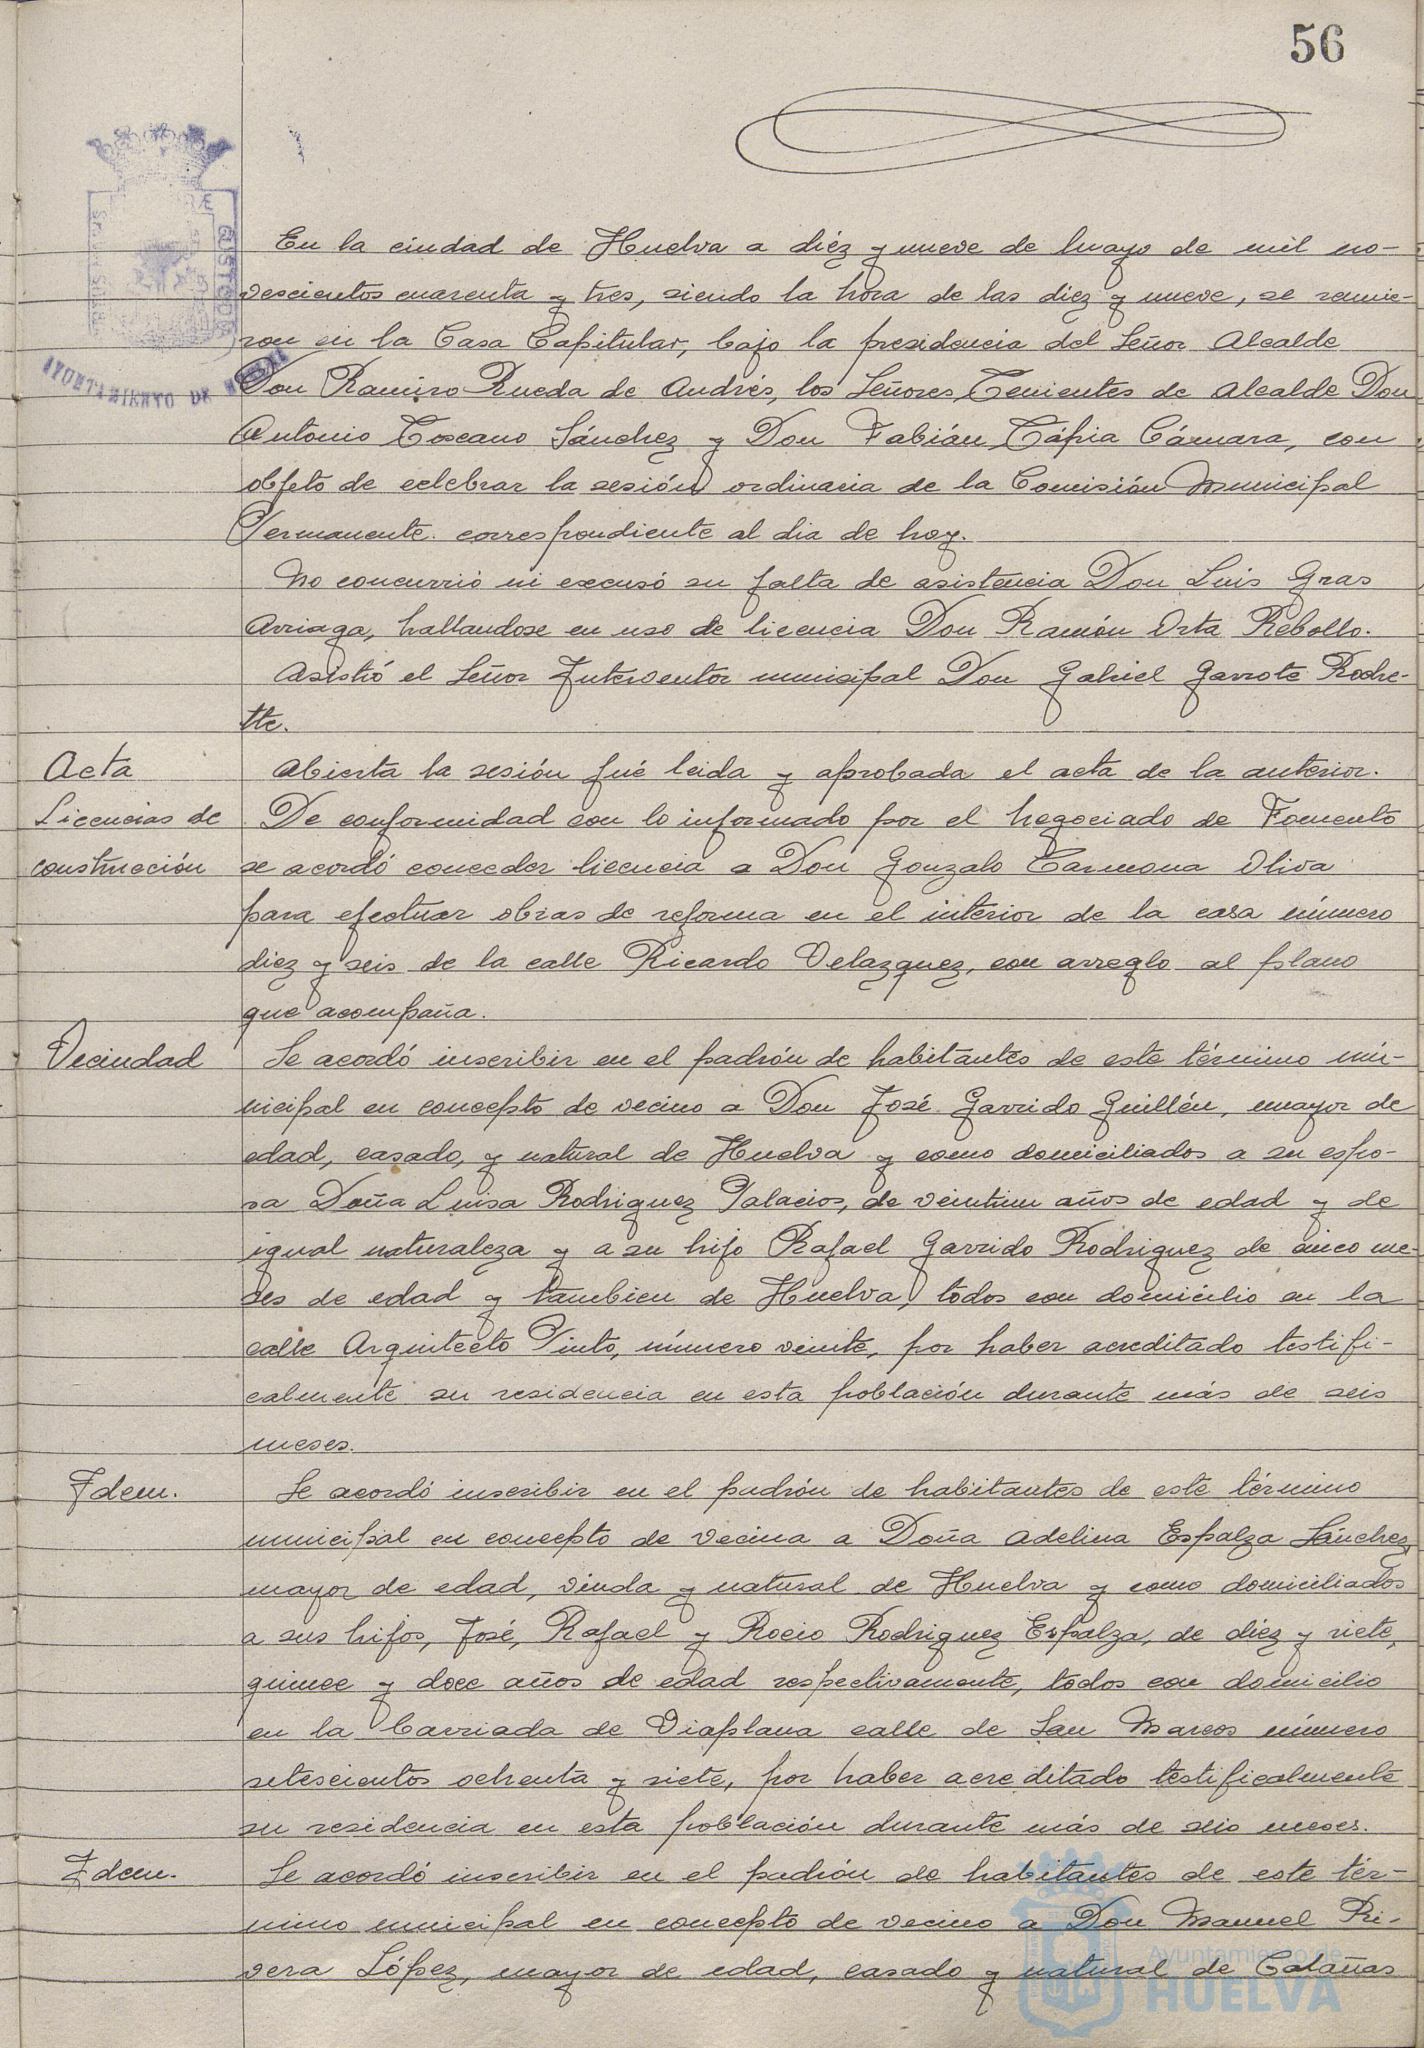 56
En la ciudad de Huelva a diéz y nueve de Mayo de mil no-
vescientos cuarenta y tres, siendo la hora de las diez y nueve, se reunie-
ron en la Casa Capitular, bajo la presidencia del Señor Alcalde
AYUNTAMIENTO DE HUELVA
Don Ramiro Rueda de Andrés, los Señores Tenientes de Alcalde Don
Antonio Toscano Sánchez y Don Fabián Tápia Cámara, con
objeto de celebrar la sesión ordinaria de la Comisión Municipal
Permanente correspondiente al dia de hoy.
No concurrió ni excusó su falta de asistencia Don Luis Gras
Arriaga, hallandose en uso de licencia Don Ramón Orta Rebollo.
Asistió el Señor Interventor municipal Don Gabriel Garrote Rodre-
tte.
Acta
Abierta la sesión fué leida y aprobada el acta de la anterior.
Licencias de
De conformidad con lo informado por el Negociado de Fomento
construcción
se acordó conceder licencia a Don Gonzalo Carmona Oliva
para efectuar obras de reforma en el interior de la casa número
diez y seis de la calle Ricardo Velazquez, con arreglo al plano
que acompaña.
Vecindad
Se acordó inscribir en el padrón de habitantes de este término mú-
nicipal en concepto de vecino a Don José Garrido Guillén, mayor de
edad, casado, y natural de Huelva y como domiciliados a su espo-
sa Doña Luisa Rodriguez Palacios, de veintiun años de edad y de
igual naturaleza y a su hijo Rafael Garrido Rodriguez de cinco me-
ses de edad y tambien de Huelva, todos con domicilio en la
calle Arquitecto Pinto, número veinte, por haber acreditado testifi-
calmente su residencia en esta población durante más de seis
meses.
Idem.
Se acordó inscribir en el padrón de habitantes de este término
municipal en concepto de vecina a Doña Adelina Espalza Sánchez,
mayor de edad, viuda y natural de Huelva y como domiciliados
a sus hijos, José, Rafael y Rocio Rodriguez Espalza, de diéz y siete,
quince y doce años de edad respectivamente, todos con domicilio
en la barriada de Viaplana calle de San Marcos número
setescientos ochenta y siete, por haber acreditado testificalmente
su residencia en esta población durante más de seis meses.
Idem.
Se acordó inscribir en el padrón de habitantes de este tér-
mino municipal en concepto de vecino a Don Manuel Ri-
vera López, mayor de edad, casado y natural de Calañas
Ayuntamiento de
HUELVA